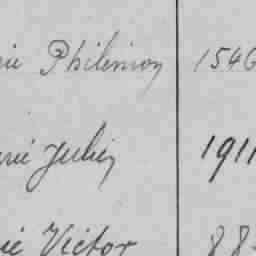 rie Philimon 1546
rie Julien 1911
rie Victor 88